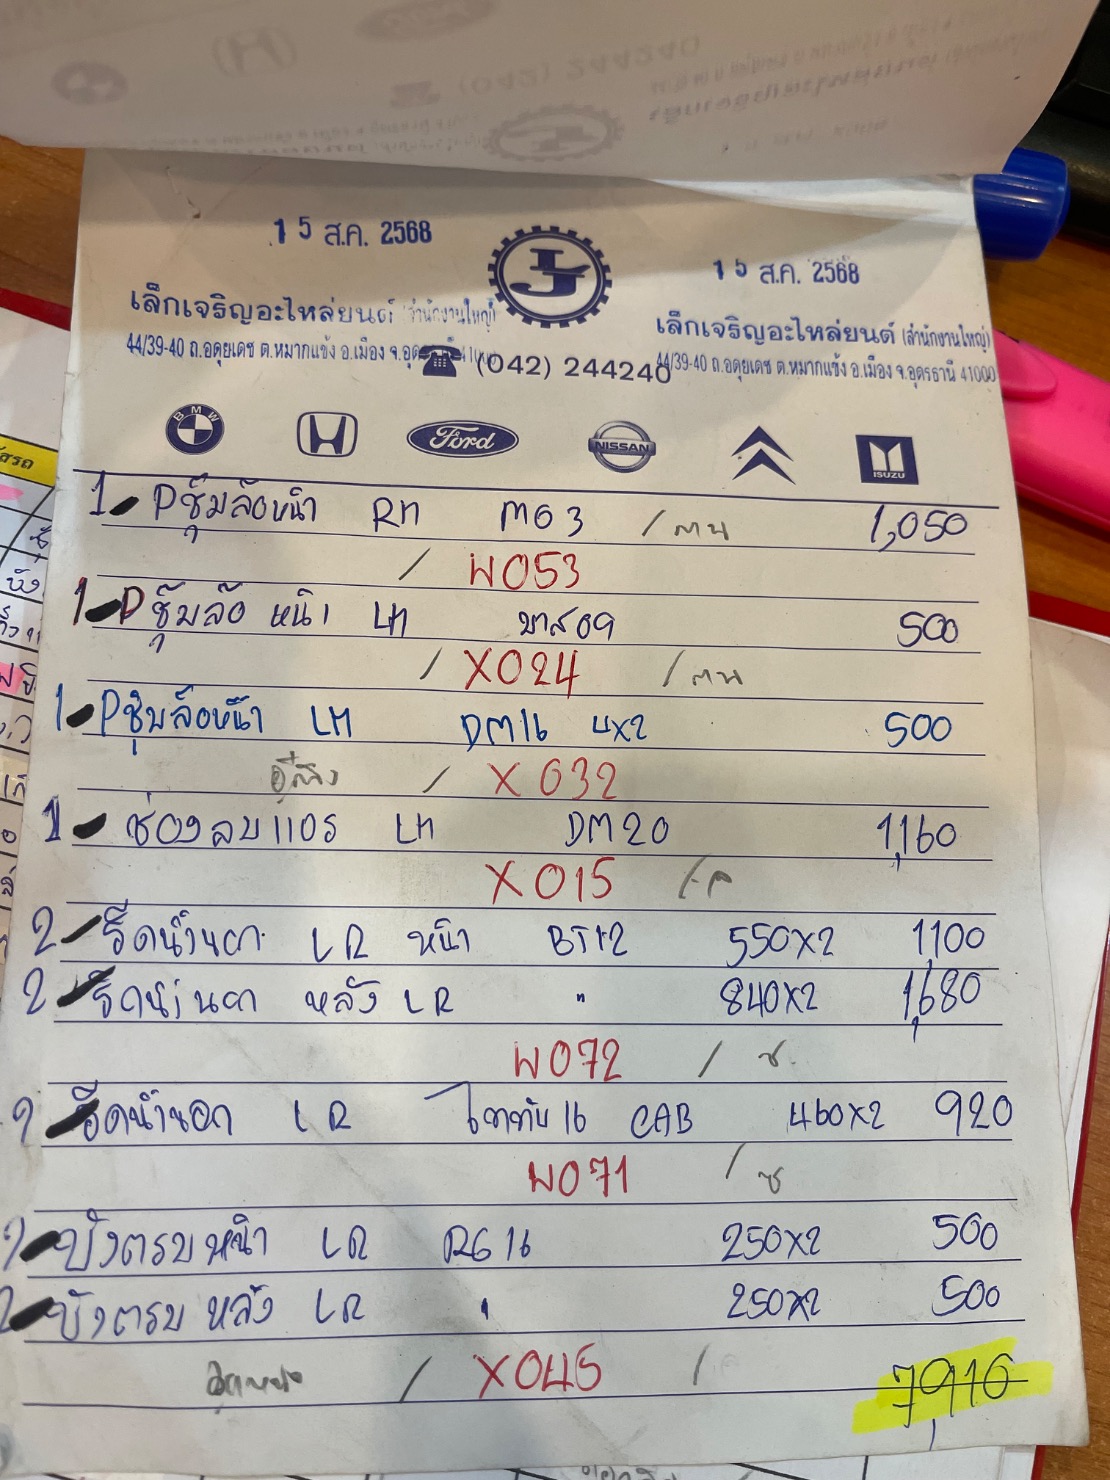 15 ส.ค. 2568
15 ส.ค. 2568
เล็กเจริญอะไหล่ยนต์ (สำนักงานใหญ่)
เล็กเจริญอะไหล่ยนต์ (สำนักงานใหญ่)
44/39-40 ถ.อดุยเดช ต.หมากแข้ง อ.เมือง จ.อุด
(042) 244240
44/39-40 ถ.อดุยเดช ต.หมากแข้ง อ.เมือง จ.อุดรธานี 41000
BMW Ford NISSAN ISUZU
1 Pซุ้มล้อหน้า RH MG3 / ตน 1,050
/ W053
1 Pซุ้มล้อ หน้า LH 500
/ X024 / ตน
1 Pซุ้มล้อหน้า LH DM16 4x2 500
/ X032
1 ช่องลมแอร์ LH DM20 1,160
X015
2 รีดน้ำนอก LR หน้า 550x2 1,100
2 รีดน้ำนอก หลัง LR " 840x2 1,680
W072 / ซ.
2 รีดน้ำนอก LR ไททัน 16 CAB 460x2 920
W071 / ซ
2 บังตรบหน้า LR RG16 250x2 500
2 บังตรบ หลัง LR " 250x2 500
/ X045 /
7,910